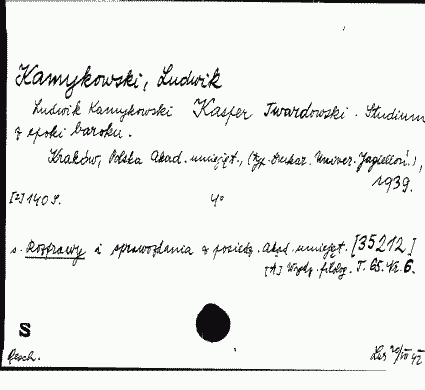 Kamykowski, Ludwik
Ludwik Kamykowski Kasper Twardowski. Studium
z epoki baroku.
Kraków, Polska Akad. umiejęt., (Typ. Drukar. Univer. Jagielloń.),
1939.
[2] 140 S. 4°
s. Rozprawy i sprawozdania z posiedz. Akad. umiejęt. [35212]
[A] Wydz. filolog. T. 65. Nr. 6.
S
Gesch.